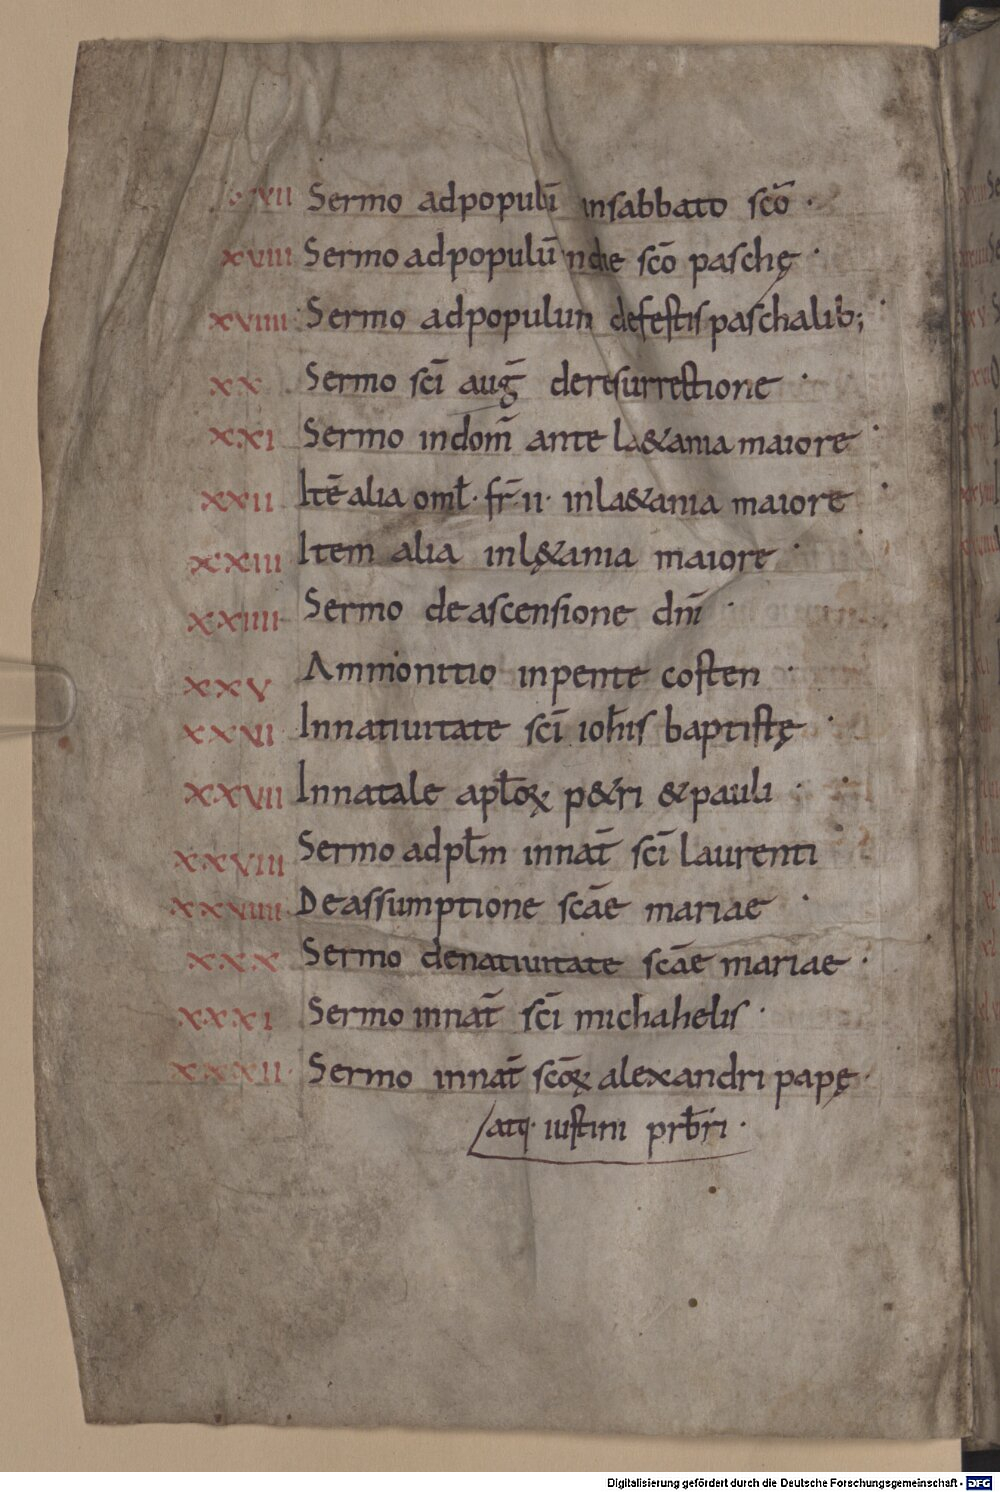 XVII Sermo adpopulū insabbato scō ·
XVIII Sermo adpopulū indie scō paschę ·
XVIIII Sermo adpopulum defestis paschalib;
XX Sermo scī aug̅ deresurrectione ·
XXI Sermo indom̅ ante la&ania maiore ·
XXII Itē alia oml̅ · fr̅ · ii · inla&ania maiore ·
XXIII Item alia inlę&ania maiore ·
XXIIII Sermo deascensione dn̅i ·
XXV Ammonitio inpente costen ·
XXVI Innatiuitate scī ioh̅is baptistę ·
XXVII Innatale apl̅oꝝ p&ri &pauli ·
XXVIII Sermo adpl̅m innat̅ scī laurenti
XXVIIII Deassumptione scāe mariae ·
XXX Sermo denatiuitate scāe mariae ·
XXXI Sermo innat̅ scī michahelis ·
XXXII Sermo innat̅ scōꝝ alexandri papę ·
atq· iustini prb̅ri ·
Digitalisierung gefördert durch die Deutsche Forschungsgemeinschaft - DFG